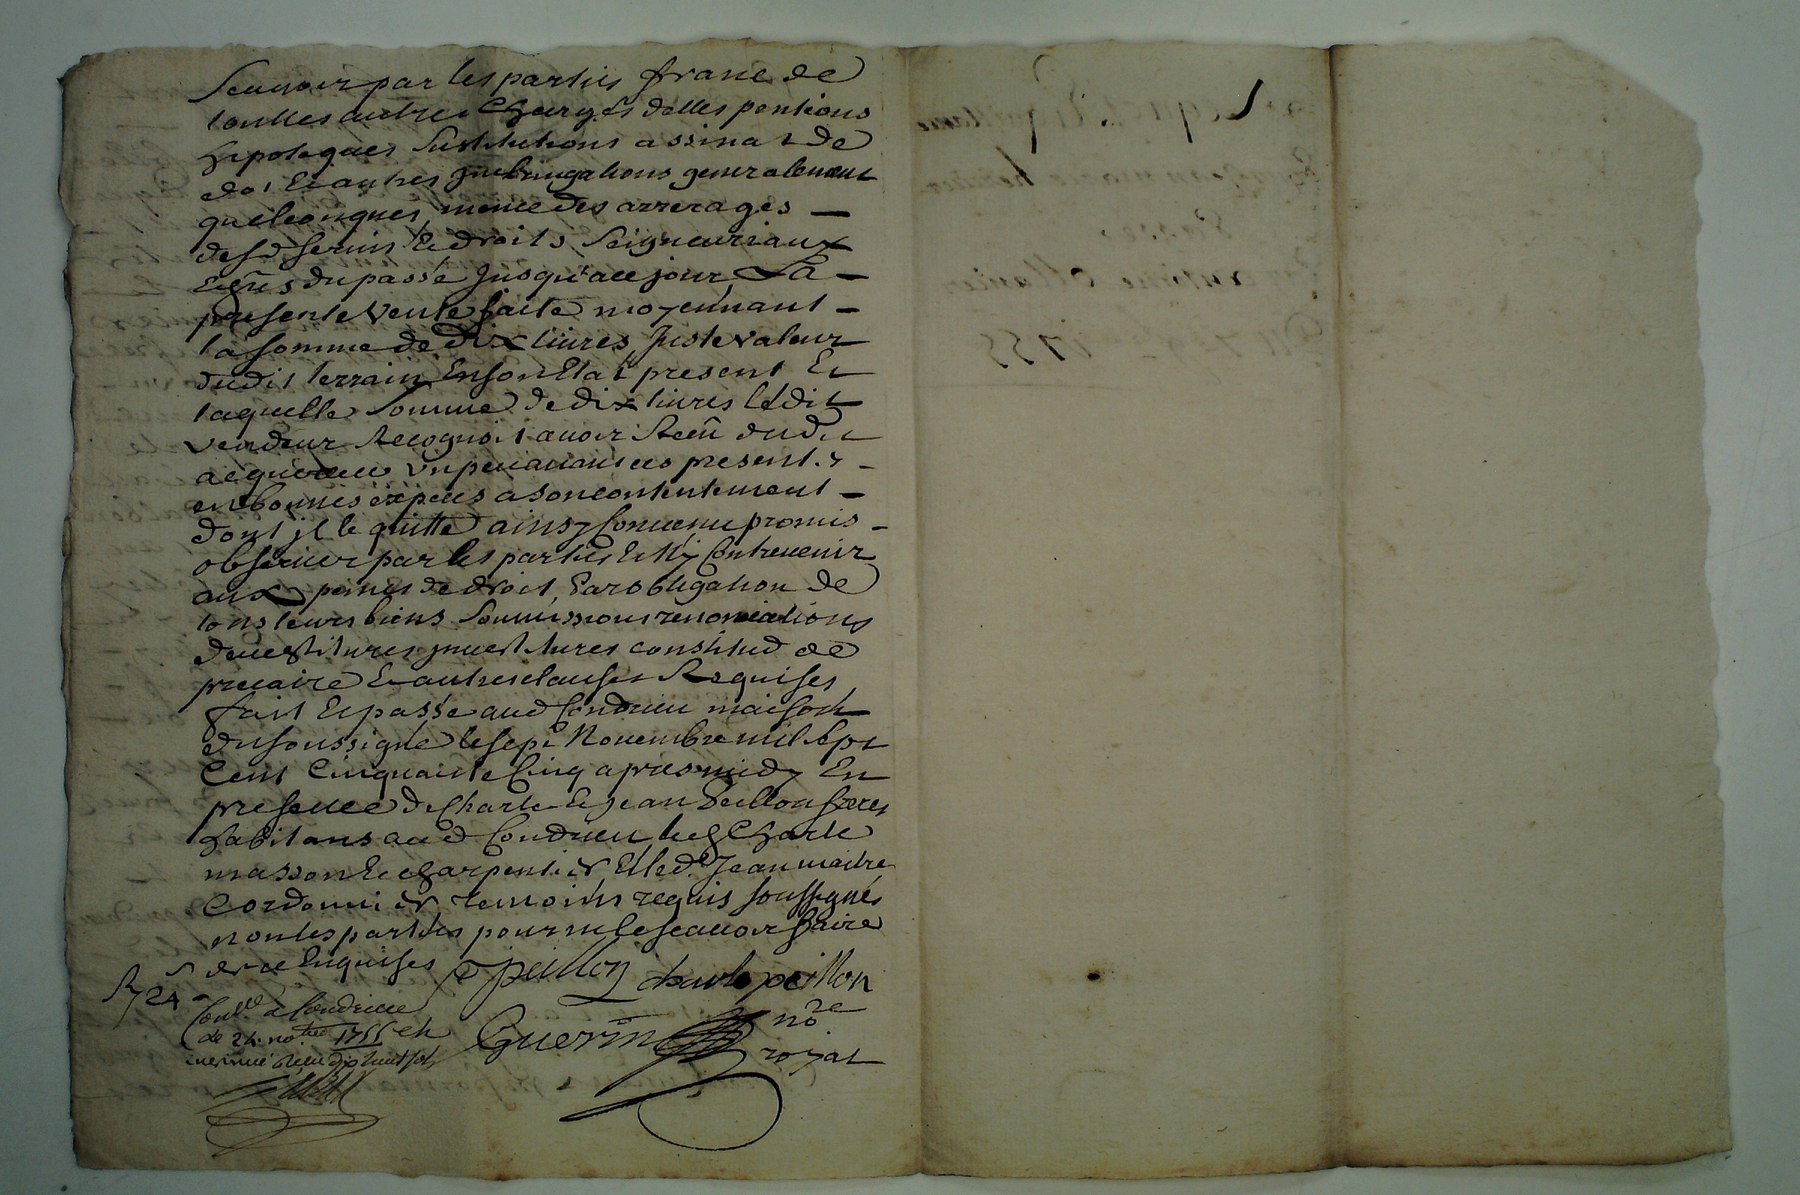 Scauoir par les parties franc de
touttes autres Charges dettes pentions
hipoteques Sustitutions assinat de
dot Et autres Jnbringations generalement
quelconques, meme des arrerages
desd servis Et droits Seigneuriaux
du passé Jusqu'a ce jour, La
presente Vente faite moyennant
la somme de Dix liures Juste valeur
dudit terrain En son Etat present Et
laquelle Somme de dix liures ledit
Vendeur Recognoit auoir Receu dudit
acquereur cs presentes
en bonnes especes a son contentement
dont jl le quitte ainsy Conuenu promis
obseruer par les parties Et Ny Contreuenir
aux peines de droit, Par obligation de
tous leurs biens Soumissions renonciations
deuestitures jnuestitures constitud de
precaire Et autres clauses Requises
fait Et passé aud Condrieu maison
du soussigné le sept Nouembre mil sept
Cent Cinquante Cinq apres midy En
presence de Charle Et Jean Peillon freres
habitans aud Condrieu, led Charle
masson Et charpentier Et led. Jean maitre
Cordonnier temoins requis soussignés
non les parties pour ne le scauoir faire
de ce Enquises
J peillon charle peillon
R 24 s
Conllé a Condrieu
le 24 nobre 1755 et
Guerin nore
royal
1755